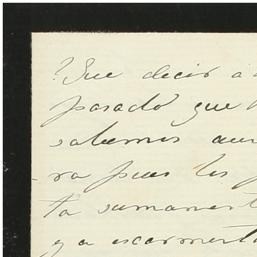 ?Que decir a
pasado que
sabemos aun
ra pues los
ta sumament
y a escarmenta